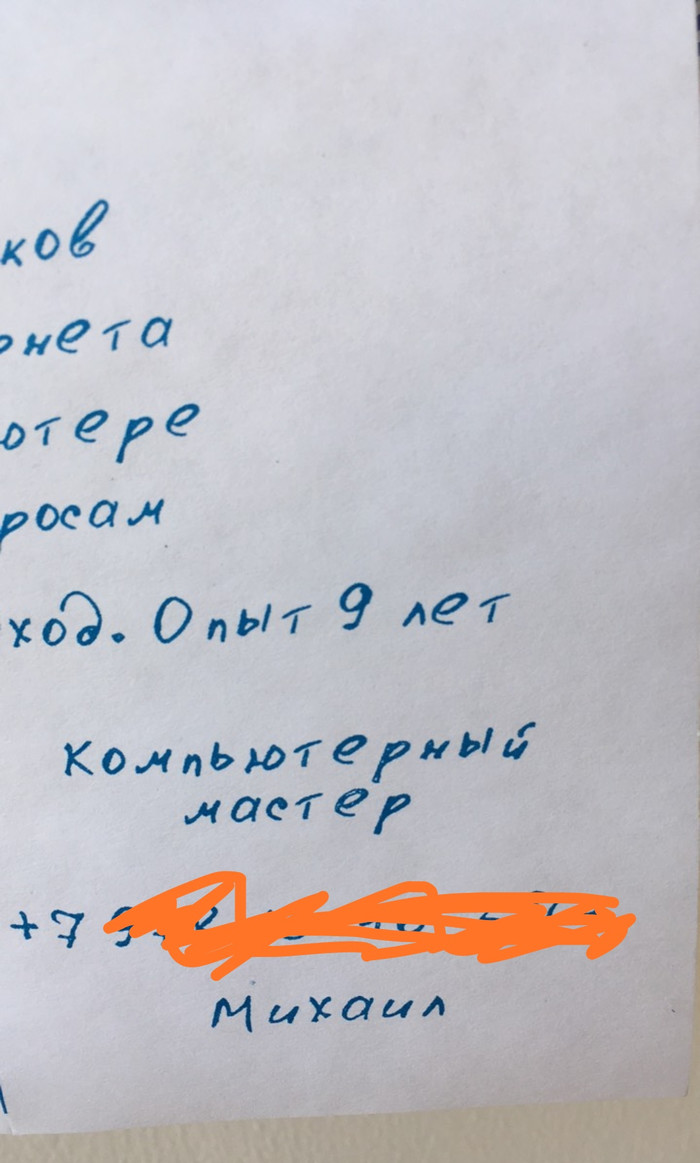 ков
рнета
ютере
росам
ход. Опыт 9 лет
Компьютерный
мастер
+7
Михаил